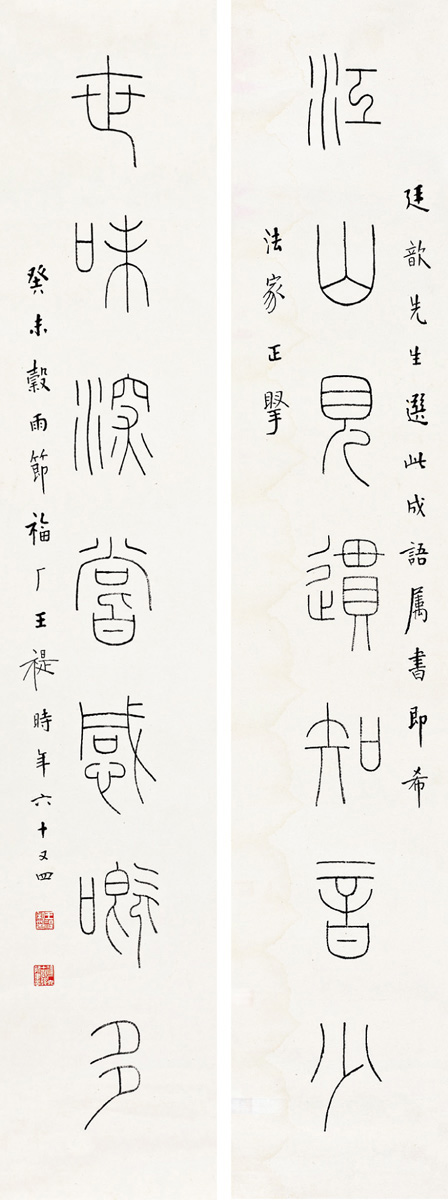 廷歆先生選此成語属書即希
江山見遺知音少
法家正掔
世味深嘗感嘅多
癸未穀雨節福厂王禔時年六十又四